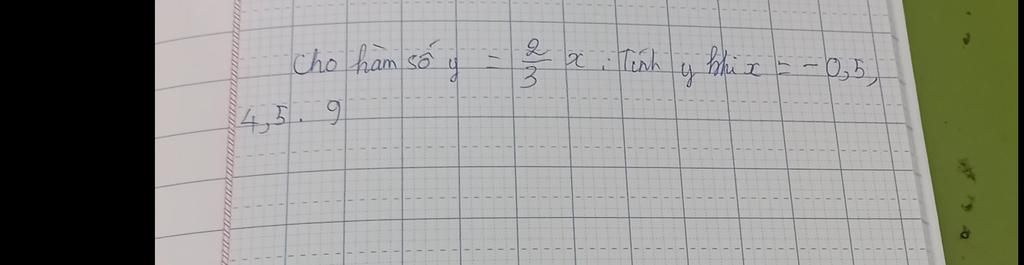 Cho hàm số y = 2/3 x. Tính y khi x = -0,5,
4,5. 9